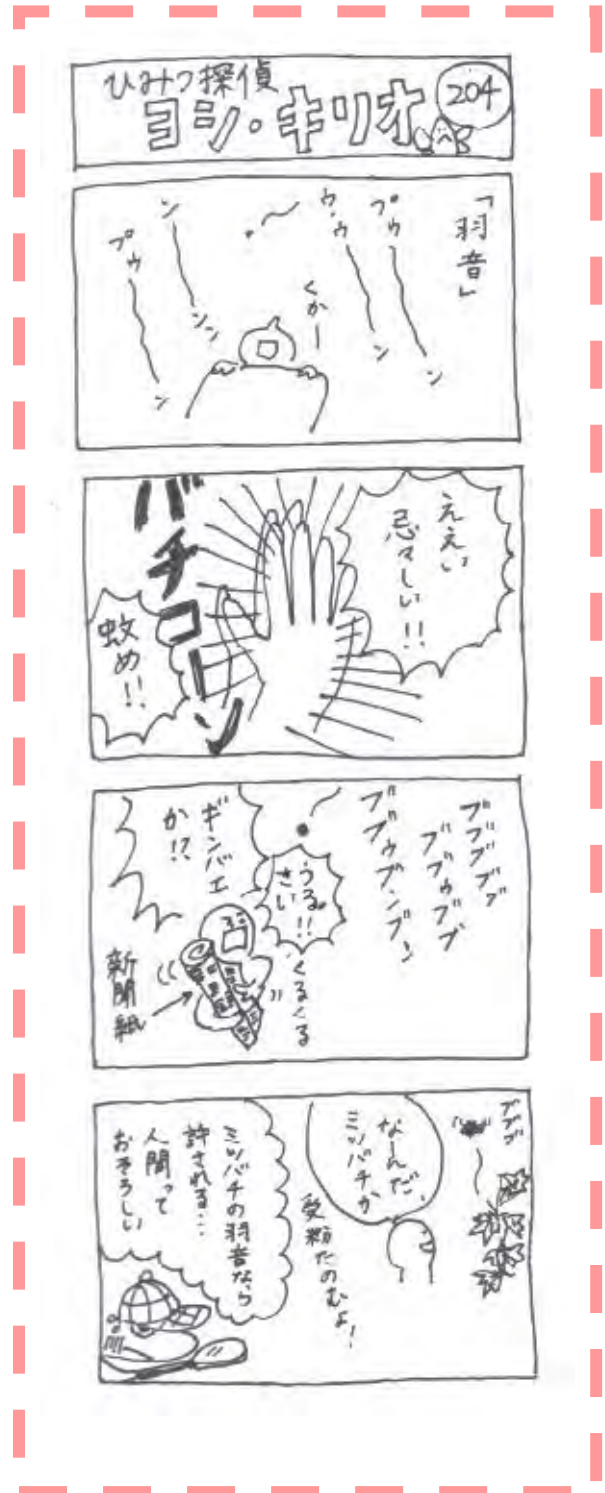 ひみつ探偵
ヨシ・キリオ
204
「羽音」
プゥーーン
ウ・ウーーン
くかー
ンーーンン
プゥーーン
ええい
忌々しい!!
バチコーン
蚊め!!
ブブブブァ
ブブゥブブ
ブブゥブンブン
うる
さい!!
くるくる
ギンバエ
か!?
新聞紙
ブブブ
なーんだ、
ミツバチか
受粉たのむよ!
ミツバチの羽音なら
許される…
人間って
おそろしい